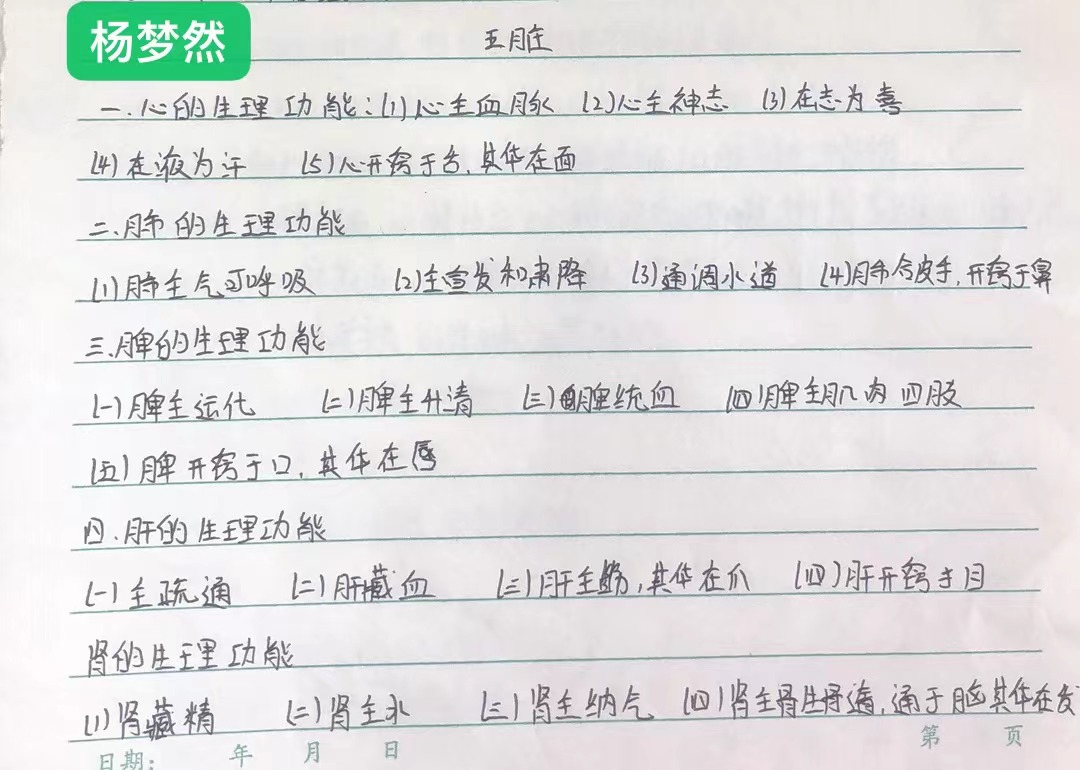 杨梦然
五脏
一.心的生理功能:(1)心主血脉 (2)心主神志 (3)在志为喜
(4)在液为汗 (5)心开窍于舌,其华在面
二.肺的生理功能
(1)肺主气司呼吸 (2)主宣发和肃降 (3)通调水道 (4)肺合皮毛,开窍于鼻
三.脾的生理功能
(一)脾主运化 (二)脾主升清 (三)脾统血 (四)脾主肌肉四肢
(五)脾开窍于口,其华在唇
四.肝的生理功能
(一)主疏通 (二)肝藏血 (三)肝主筋,其华在爪 (四)肝开窍于目
肾的生理功能
(1)肾藏精 (二)肾主水 (三)肾主纳气 (四)肾主骨生骨遀,通于脑其华在发
日期: 年 月 日 第 页